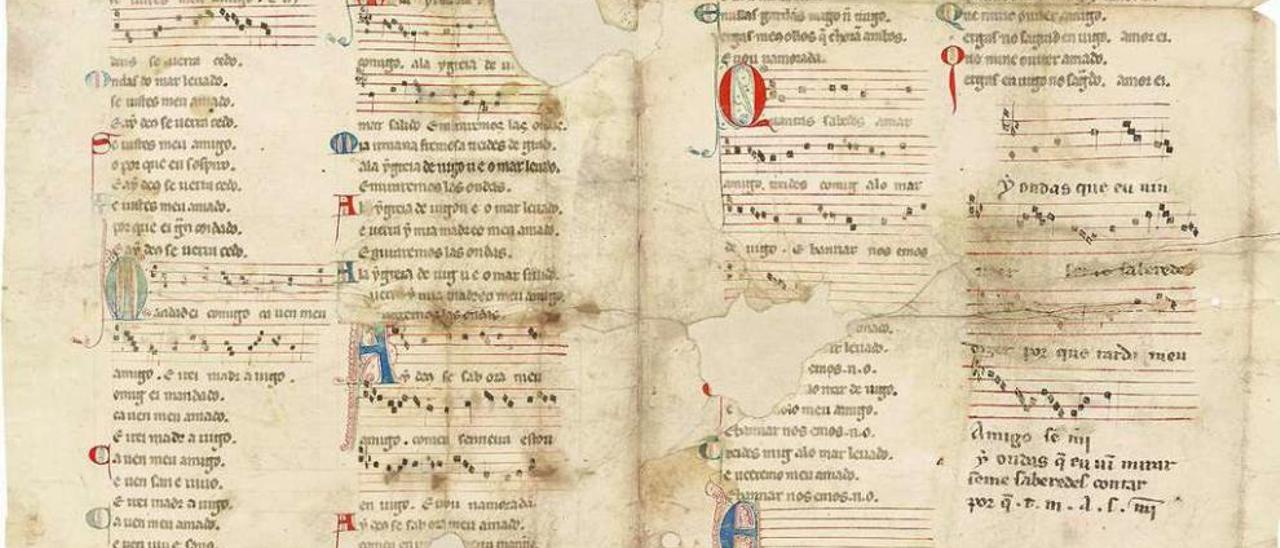 deus se uerra cedo.
Ondas do mar leuado.
se uistes meu amado.
E ay deus se uerra cedo.
Se uistes meu amigo.
o por que eu sospiro.
E ay deus se uerra cedo.
Se uistes meu amado.
por que ei gran cuidado.
E ay deus se uerra cedo.
Mandad ei comigo ca uen meu
amigo. E irei madr a uigo.
comig ei mandado.
ca uen meu amado.
E irei madr a uigo.
Ca uen meu amigo.
e uen san e uiuo.
E irei madr a uigo.
Ca uen meu amado.
e uen uiu e sano.
comigo. ala ygreia de u
mar salido E miraremos las ondas.
Mia irmana fremosa treides de grado.
ala ygreia de uigo u e o mar leuado.
E miraremos las ondas.
A la ygreia de uigo u e o mar leuado.
e uerra y mia madre o meu amado.
E miraremos las ondas.
A la ygreia de uig u e o mar salido.
e uerra y mia madre o meu amigo.
E miraremos las ondas.
Ay deus se sab ora meu
amigo. com eu senneira estou
en uigo. E uou namorada.
Ay deus se sab ora meu amado.
com eu en
E nullas gardas migo non trago.
ergas meus ollos que choran ambos.
E uou namorada.
Quantas sabedes amar
amigo. treides comig alo mar
de uigo. E bannar nos emos
amado.
mar leuado.
emos.n.o.
lo mar de uigo.
e lo meu amigo.
E bannar nos emos.n.o.
Treides mig alo mar leuado.
e ueeremo meu amado.
E bannar nos emos.n.o.
Que nunc ouuer amigo.
ergas no sagrad en uigo. amor ei.
Que nunc ouuer amado.
ergas en uigo no sagrado. amor ei.
y ondas que eu uin
ueer se me saberedes
dizer por que tarda meu
Amigo se mi
y ondas q̄ eu uĩ mirar
se me saberedes contar
por q̄ . t . m . a . s . mi